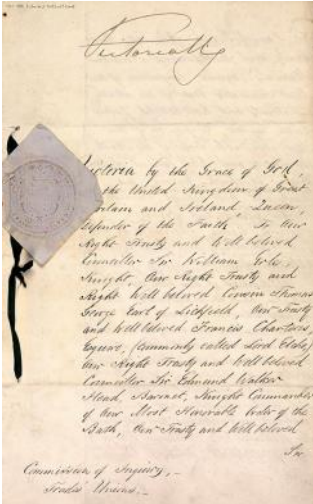 Victoria R
Victoria by the Grace of God,
of the United Kingdom of Great
Britain and Ireland, Queen,
Defender of the Faith To Our
Right Trusty and Well beloved
Councillor Sir William Erle,
Knight, Our Right Trusty and
Right Well beloved Cousin Thomas
George Earl of Lichfield, Our Trusty
and Well beloved Francis Charteris,
Esquire, (commonly called Lord Elcho)
Our Right Trusty and Well beloved
Councillor Sir Edmund Walker
Head, Baronet, Knight Commander
of Our Most Honorable Order of the
Bath, Our Trusty and Well beloved
Sir
Commission of Inquiry,—
Trades Unions.—